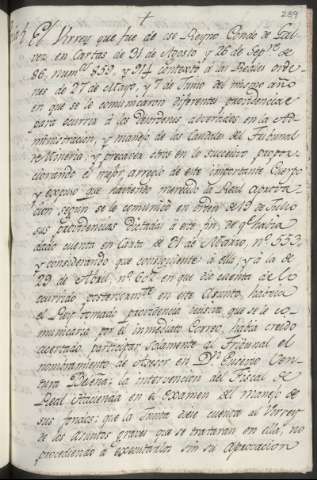 239
+
El Virrey que fue de ese Reyno Conde de Gal-
vez en Cartas de 31 de Agosto y 26 de Sepre. de
86, numos. 853, y 914 contextó á las Reales orde-
nes de 27 de Mayo, y 7 de Junio del mismo año
en que se le comunicaron diferentes providencias
para ocurrir á los desordenes advertidos en la Ad-
ministracion, y manejo de los Caudales del Tribunal
de Mineria, y precaver otros en lo succesivo propor-
cionando el mejor arreglo de este importante Cuerpo
y expuso que haviendo merecido la Real aproba-
cion segun se le comunicó en orden de 19 de Julio
sus providencias dictadas á este fin, de qe. havia
dado cuenta en Carta de 21 de Marzo, nº 553,
y considerando que consiguiente á ella, y á la de
29 de Abril, nº en que dió cuenta de lo
ocurrido posteriormte. en este Asunto, havria
el Rey tomado providencia que se le co-
municaria por el inmediato Correo, havia creido
acertado participar solamente al Tribunal el
nombramiento de Asesor en Dn. Eusevio Ven-
tura Beleña; la intervencion del Fiscal de
Real Hacienda en el examen del manejo de
sus fondos; que la Junta diese cuenta al Virrey
de los Asuntos graves que se trataran en ella, no
procediendo á executarlos sin su Aprovacion